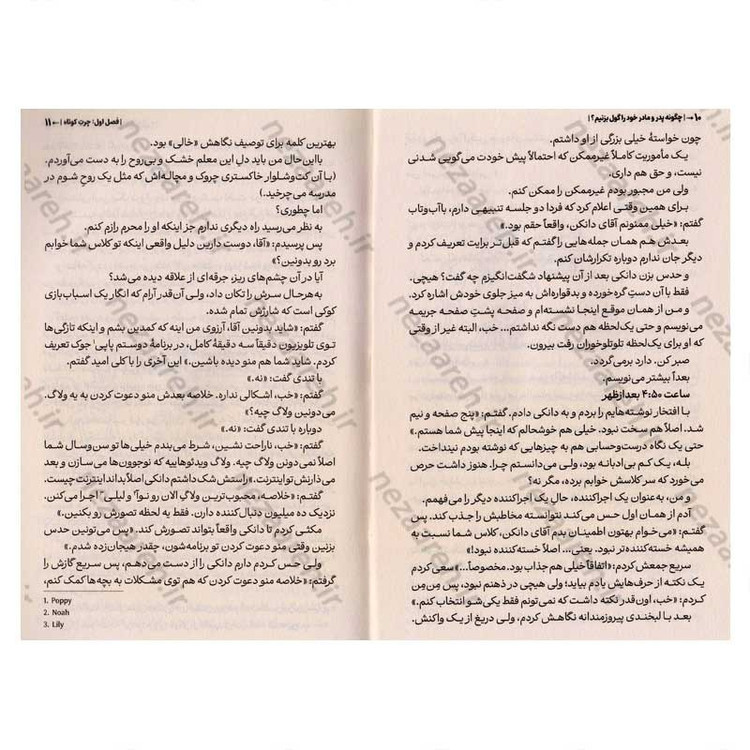 ۱۰ → | چگونه پدر و مادر خود را گول بزنیم؟ |
چون خواستهٔ خیلی بزرگی از او داشتم.
یک مأموریت کاملاً غیرممکن که احتمالاً پیش خودت می‌گویی شدنی
نیست، و حق هم داری.
ولی من مجبور بودم غیرممکن را ممکن کنم.
برای همین وقتی اعلام کرد که فردا دو جلسه تنبیهی دارم، باآب‌وتاب
گفتم: «خیلی ممنونم آقای دانکن، واقعاً حقم بود.»
بعدش هم همان جمله‌هایی را گفتم که قبل‌تر برایت تعریف کردم و
دیگر جان ندارم دوباره تکرارشان کنم.
و حدس بزن دانکی بعد از آن پیشنهاد شگفت‌انگیزم چه گفت؟ هیچی.
فقط با آن دستِ گره‌خورده و بدقواره‌اش به میز جلوی خودش اشاره کرد.
و من از همان موقع اینجا نشسته‌ام و صفحه پشتِ صفحه جریمه
می‌نویسم و حتی یک‌لحظه هم دست نگه نداشتم... خب، البته غیر از وقتی
که او برای یک‌لحظه تلوتلوخوران رفت بیرون.
صبر کن. دارد برمی‌گردد.
بعداً بیشتر می‌نویسم.
ساعت ۴:۵۰ بعدازظهر
با افتخار نوشته‌هایم را بردم و به دانکی دادم. گفتم: «پنج صفحه و نیم
شد. اصلاً هم سخت نبود. خیلی هم خوشحالم که اینجا پیش شما هستم.»
حتی یک نگاه درست‌وحسابی هم به چیزهایی که نوشته بودم نینداخت.
بله، یک کم بی‌ادبانه بود، ولی می‌دانستم چرا. هنوز داشت حرص
می‌خورد که سر کلاسش خوابم برده، مگر نه؟
و من، به‌عنوان یک اجراکننده، حالِ یک اجراکننده دیگر را می‌فهمم.
آدم از همان اول حس می‌کند نتوانسته مخاطبش را جذب کند. پس
گفتم: «می‌خوام بهتون اطمینان بدم آقای دانکن، کلاس شما نسبت به
همیشه خسته‌کننده‌تر نبود. یعنی... اصلاً خسته‌کننده نبود!»
سریع جمعش کردم: «اتفاقاً خیلی هم جذاب بود. مخصوصاً...» سعی کردم
یک نکته از حرف‌هایش یادم بیاید؛ ولی هیچی در ذهنم نبود، پس مِن‌مِن
کردم: «خب، اون‌قدر نکته داشت که نمی‌تونم فقط یکی‌شو انتخاب کنم.»
بعد با لبخندی پیروزمندانه نگاهش کردم، ولی دریغ از یک واکنش.
| فصل اول: چرت کوتاه | ← ۱۱
بهترین کلمه برای توصیف نگاهش «خالی» بود.
بااین‌حال من باید دلِ این معلم خشک و بی‌روح را به دست می‌آوردم.
(با آن کت‌وشلوار خاکستری چروک و مچاله‌اش که مثل یک روحِ شوم در
مدرسه می‌چرخید.)
اما چطوری؟
به نظر می‌رسید راه دیگری ندارم جز اینکه او را محرم رازم کنم.
پس پرسیدم: «آقا، دوست دارین دلیل واقعی اینکه تو کلاس شما خوابم
برد رو بدونین؟»
آیا در آن چشم‌های ریز، جرقه‌ای از علاقه دیده می‌شد؟
به‌هرحال سرش را تکان داد، ولی آن‌قدر آرام که انگار یک اسباب‌بازی
کوکی است که شارژش تمام شده.
گفتم: «شاید بدونین آقا، آرزوی من اینه که کمدین بشم و اینکه تازگی‌ها
توی تلویزیون دقیقاً سه دقیقهٔ کامل، در برنامهٔ دوستم پاپی¹ جوک تعریف
کردم. شاید شما هم منو دیده باشین.» این آخری را با کلی امید گفتم.
با تندی گفت: «نه.»
گفتم: «خب، اشکالی نداره. خلاصه بعدش منو دعوت کردن به یه ولاگ.
می‌دونین ولاگ چیه؟»
دوباره با تندی گفت: «نه.»
گفتم: «خب، ناراحت نشین، شرط می‌بندم خیلی‌ها تو سن‌وسال شما
اصلاً نمی‌دونن ولاگ چیه. ولاگ ویدئوهاییه که نوجوون‌ها می‌سازن و بعد
می‌ذارنش تو اینترنت.» راستش شک داشتم دانکی اصلاً بداند اینترنت چیست.
گفتم: «خلاصه، محبوب‌ترین ولاگِ الان رو نوآ² و لیلی³ اجرا می‌کنن.
نزدیک ده میلیون دنبال‌کننده دارن. فقط یه لحظه تصورش رو بکنین.»
مکثی کردم تا دانکی واقعاً بتواند تصورش کند. «پس می‌تونین حدس
بزنین وقتی منو دعوت کردن تو برنامه‌شون، چقدر هیجان‌زده شدم.»
ولی حس کردم دارم دانکی را از دست می‌دهم، پس سریع گازش را
گرفتم: «خلاصه منو دعوت کردن که هم توی مشکلات به بچه‌ها کمک کنم،
1. Poppy
2. Noah
3. Lily
nezaareh.ir